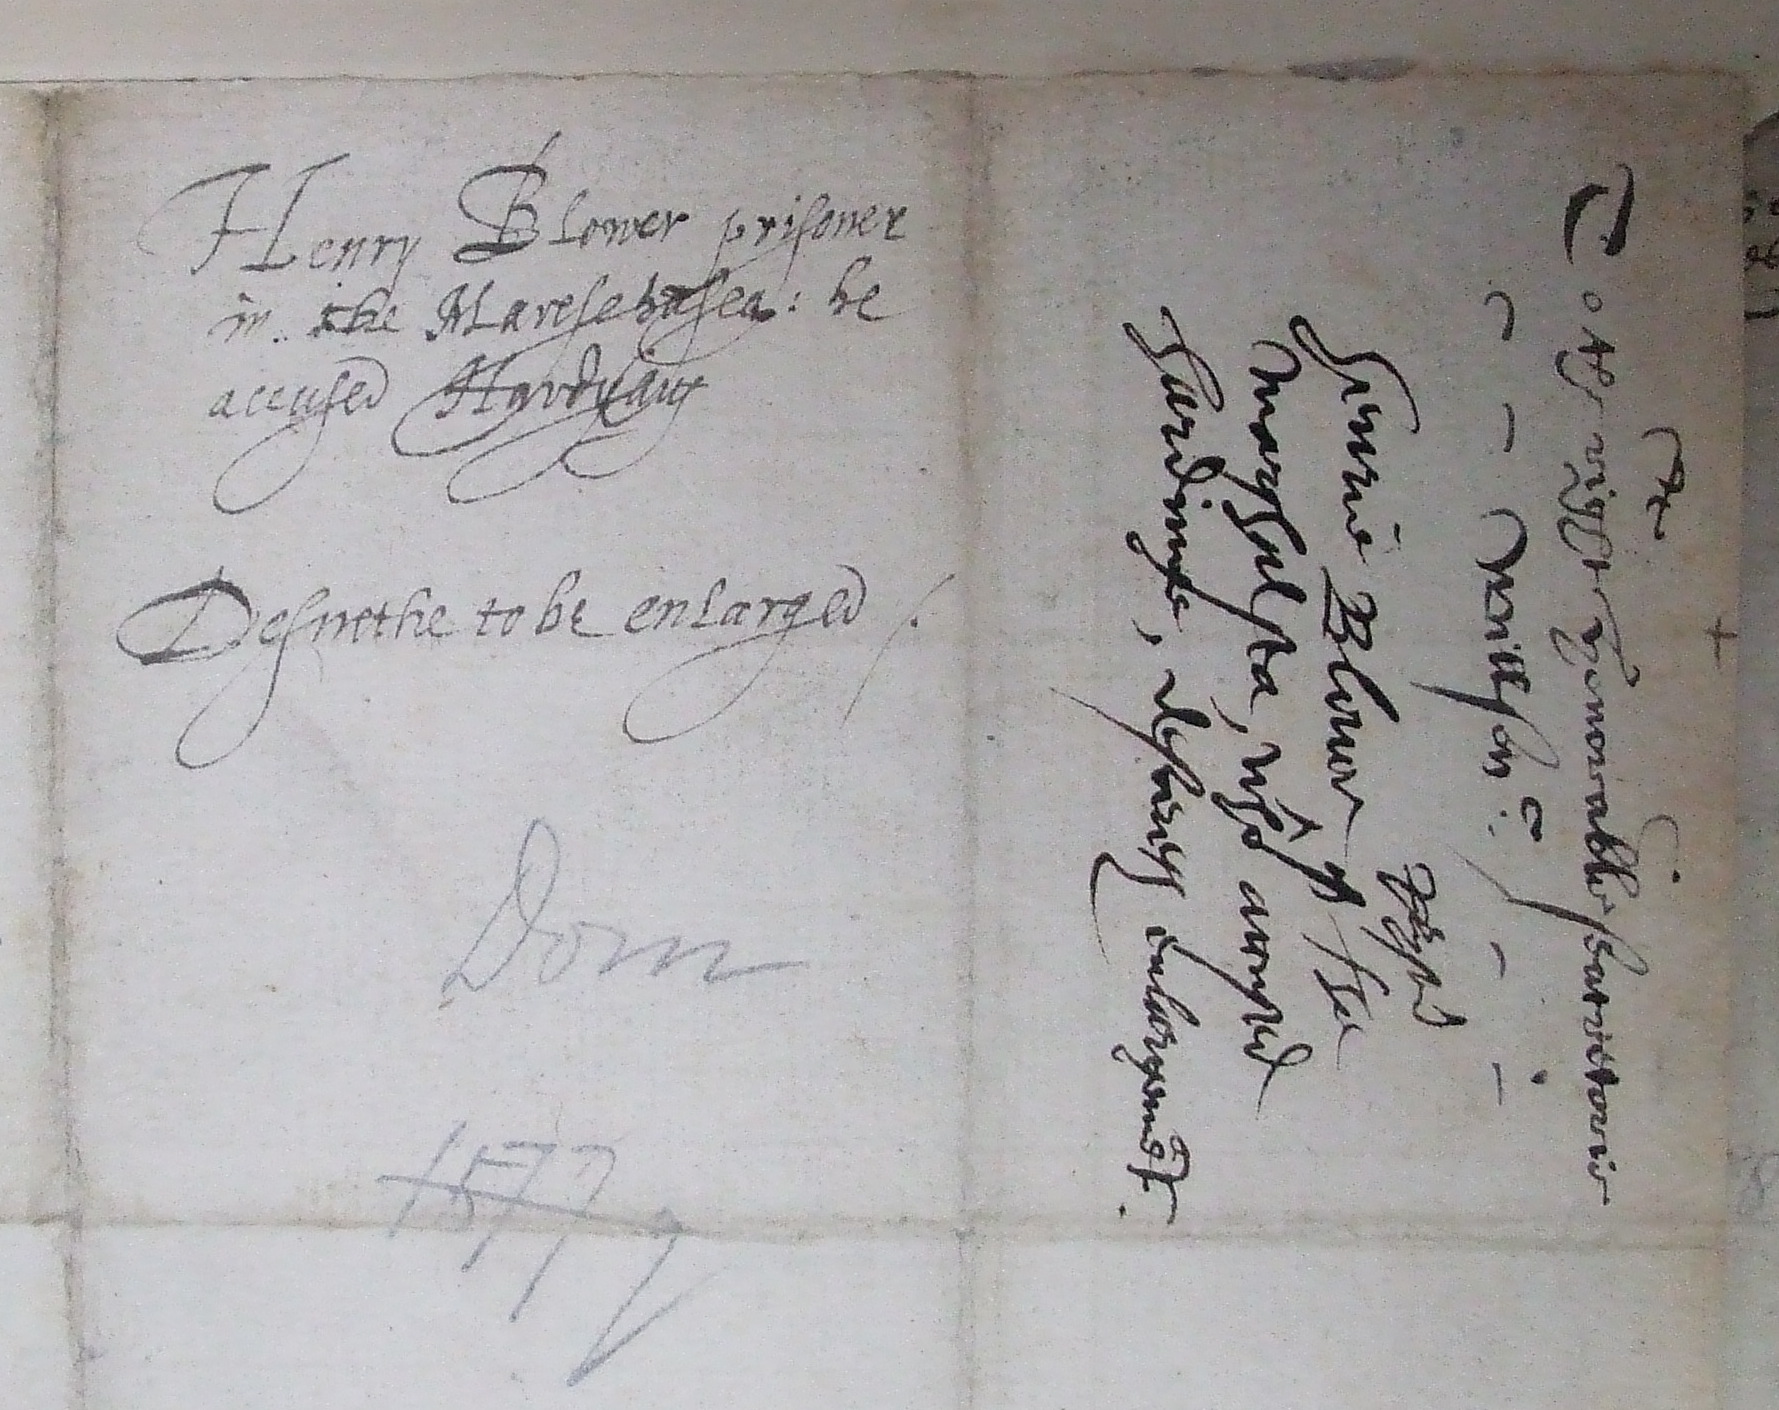 Henry Blower prisoner
in the Mareschalsea: he
accused Hardyng
Desirethe to be enlarged /.
Dom
1577
To the right honorable secretarie
willson:
Henrie Blower
marshalsea, who accused
Hardinge, desireth enlargemēt.